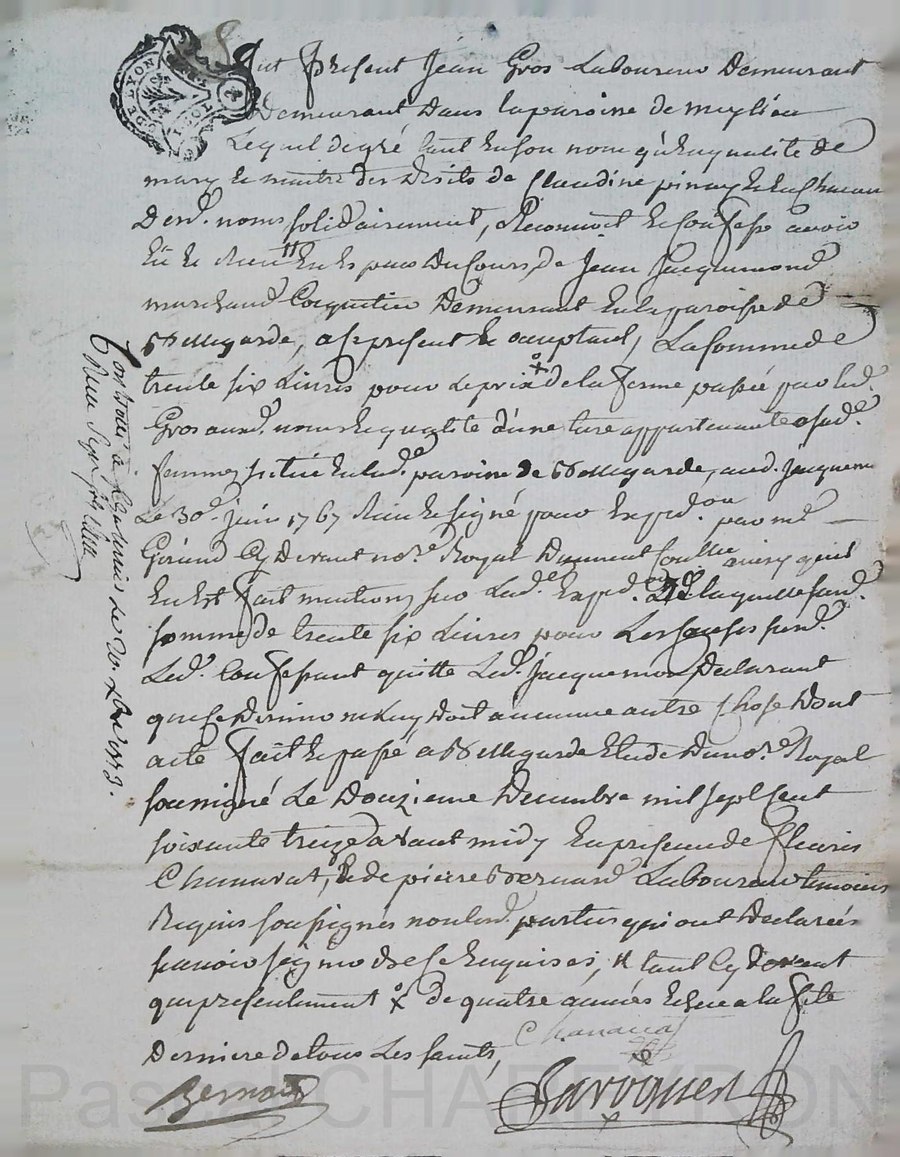 Fut Present Jean Gros Laboureur Demeurant
Demeurant Dans la paroisse de meylieu
Lequel de gré tant en son nom qu'en qualité de
mary et maitre des droits de Claudine pinay et en Chacun
Desd. noms solidairement, Reconnoit et confesse avoir
Eü et Receu De Jean Jacquemond
marchand Coquetier Demeurant en la paroisse de
Bellegarde, a ce present et acceptant, La somme de
trente six Livres pour le prix de la ferme passée par led.
Gros aud. nom et qualité d'une terre appartenante a sad.
femme, située en lad. paroisse de Bellegarde, aud. Jacquemond
Le 30e. juin 1767 Receu et signé pour Exped.on par me
Girand Cy Devant no.re Royal Duement Conllée ainsy qu'il
En Est fait mention sur Lad. Exped.on De laquelle susd.
somme de trente six Livres pour Les causes susd.
Led. Confessant quitte Led. Jacquemon Declarant
que ce Dernier ne luy Doit aucune autre Chose Dont
acte fait et passé a Bellegarde Etude Du no.re Royal
soussigné Le Douzieme Decembre mil sept cent
soixante treize avant midy En presence de fleuris
Chanavat, & de pierre Bernard Laboureur temoins
Requis soussignés non lesd. parties qui ont Declarées
scavoir signer de ce enquises, tant Cy devant
que presentement x de quatre années Echue a la fete
Derniere de tous Les saints,
Chanavat
Bernard
Pascal CHAMEYRON